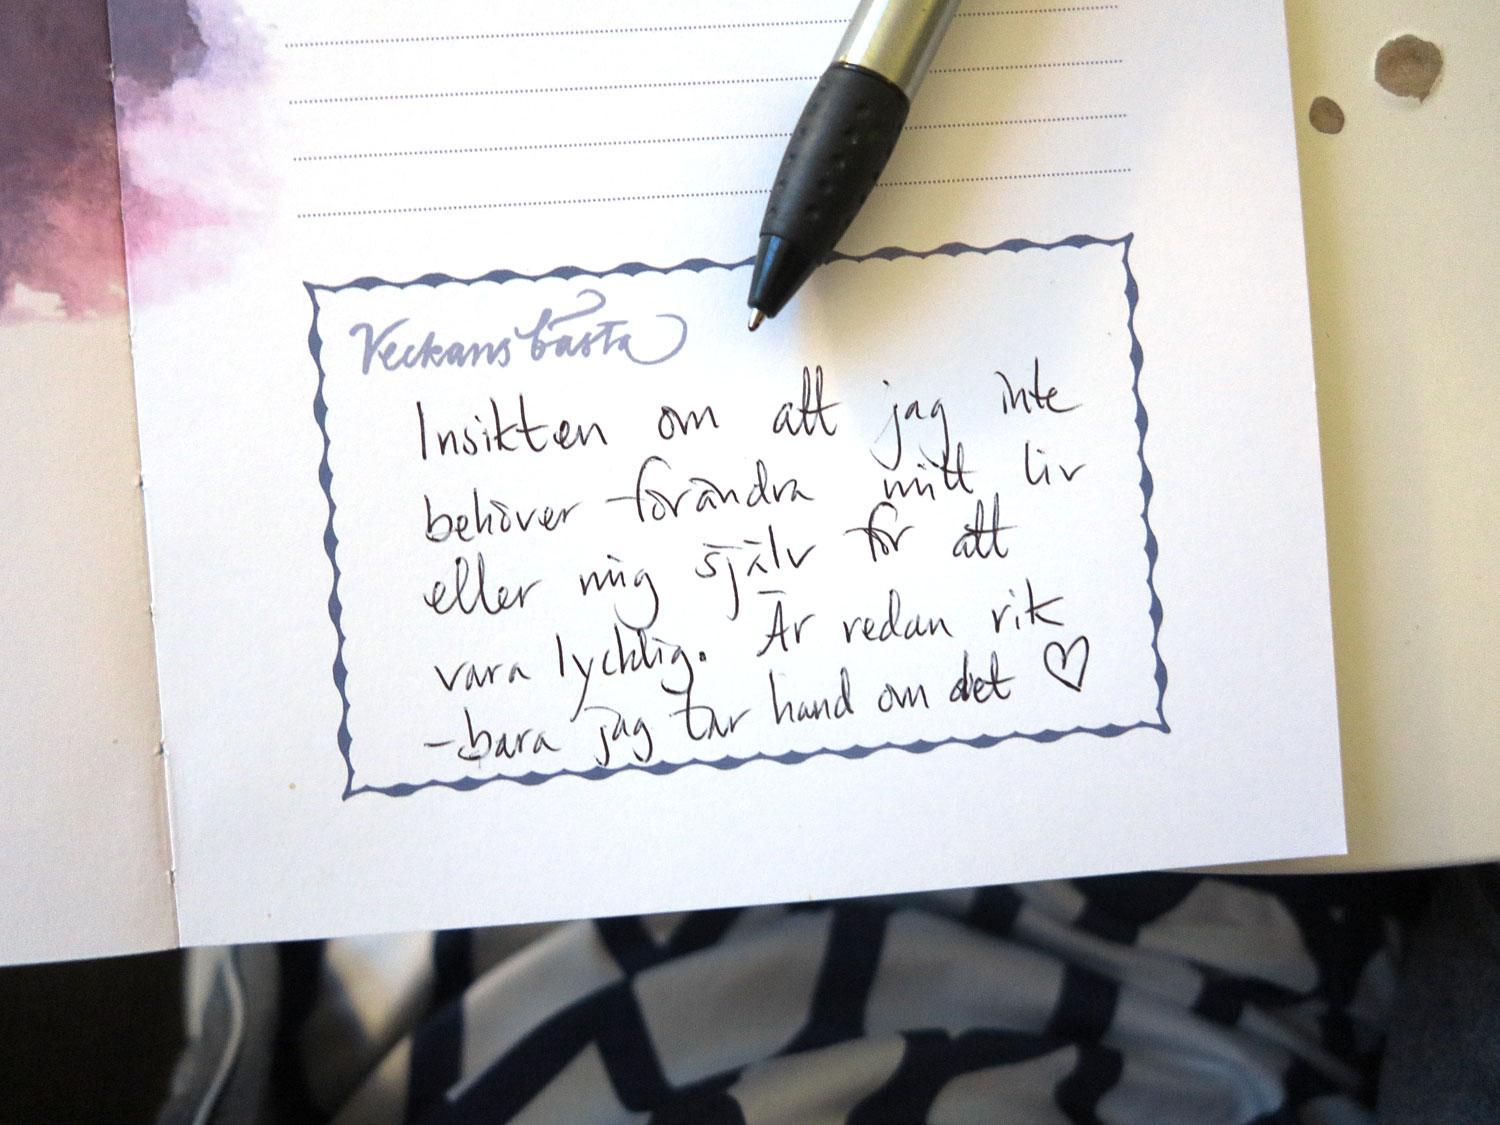 Veckans bästa
Insikten om att jag inte
behöver förändra mitt liv
eller mig själv för att
vara lycklig. Är redan rik
-bara jag tar hand om det ♡